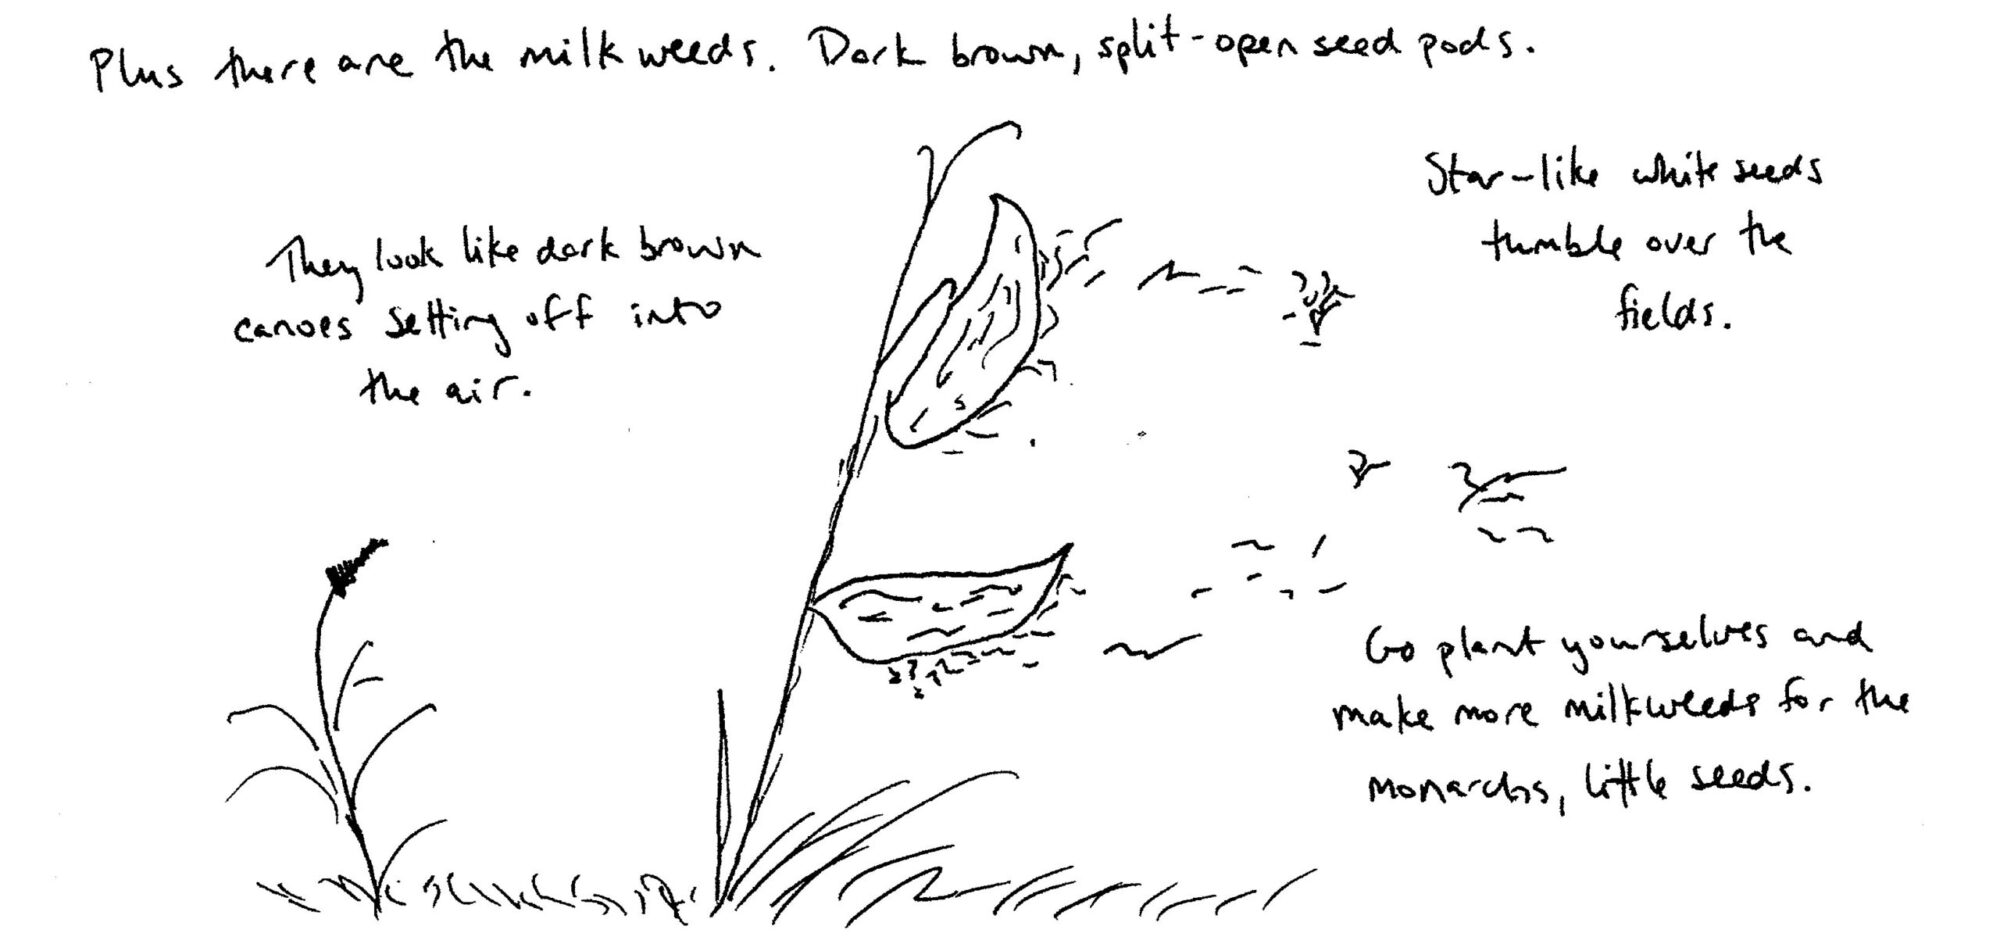 Plus there are the milkweeds. Dark brown, split-open seed pods.
They look like dark brown
canoes setting off into
the air.
Star-like white seeds
tumble over the
fields.
Go plant yourselves and
make more milkweeds for the
monarchs, little seeds.